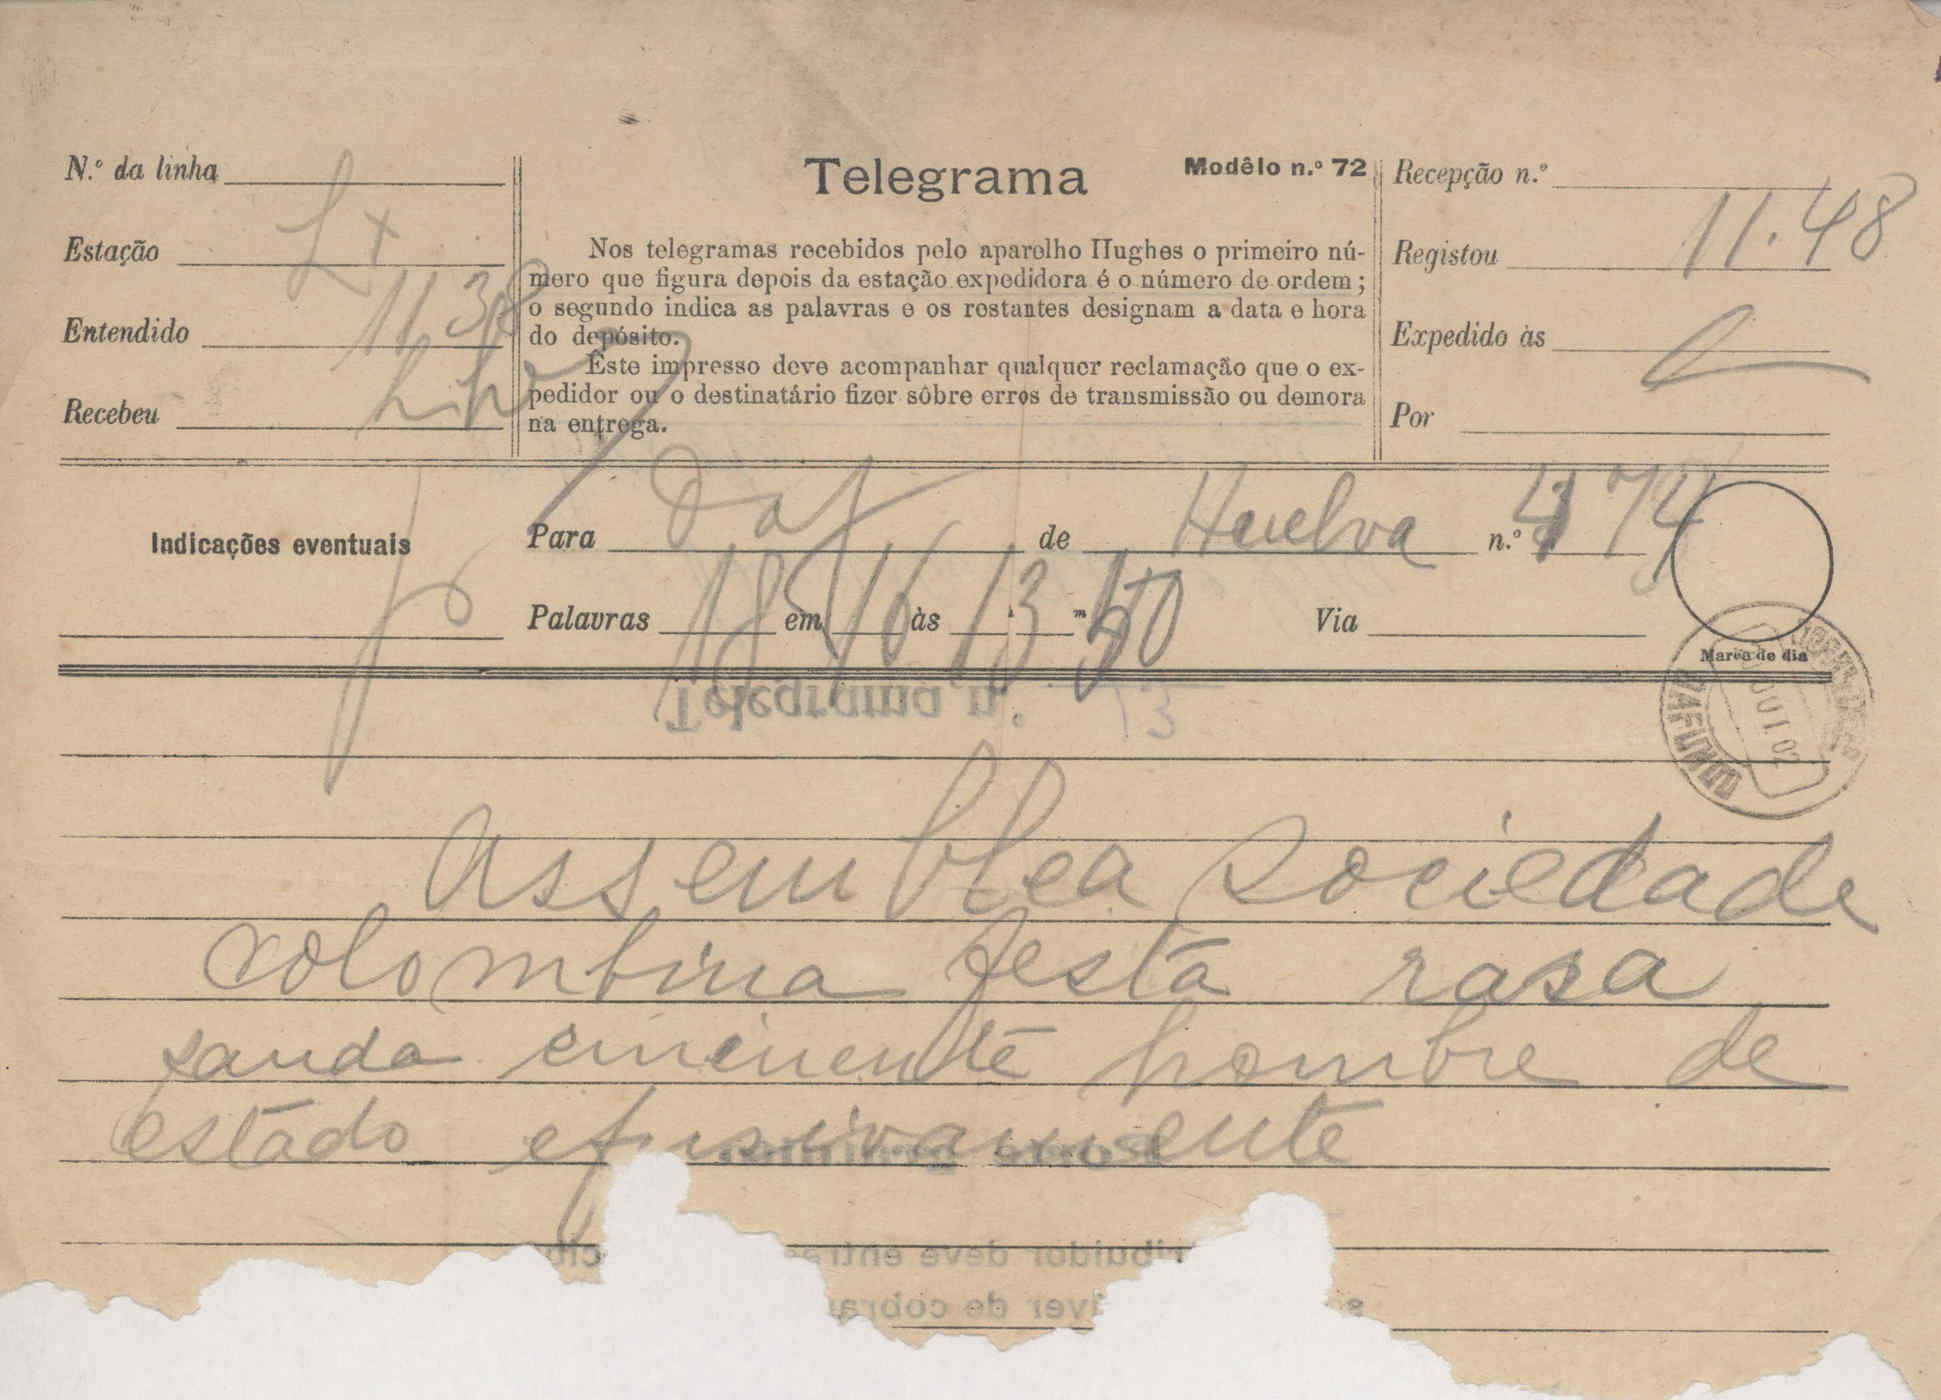 N.º da linha
Telegrama
Modêlo n.º 72
Recepção n.º
Estação Lx
Nos telegramas recebidos pelo aparelho Hughes o primeiro nú-
mero que figura depois da estação expedidora é o número de ordem;
o segundo indica as palavras e os restantes designam a data e hora
do depósito.
Este impresso deve acompanhar qualquer reclamação que o ex-
pedidor ou o destinatário fizer sôbre erros de transmissão ou demora
na entrega.
Registou 11.48
Entendido 11 38
Expedido às
Recebeu
Por
Indicações eventuais
Para de Huelva n.º 474
Palavras 18 em 16 às 13 h m 50 Via
Marca do dia
Telegrama n.º 13
Assemblea Sociedade
colombina festa rasa
sauda eminente hombre de
estado efusivamente